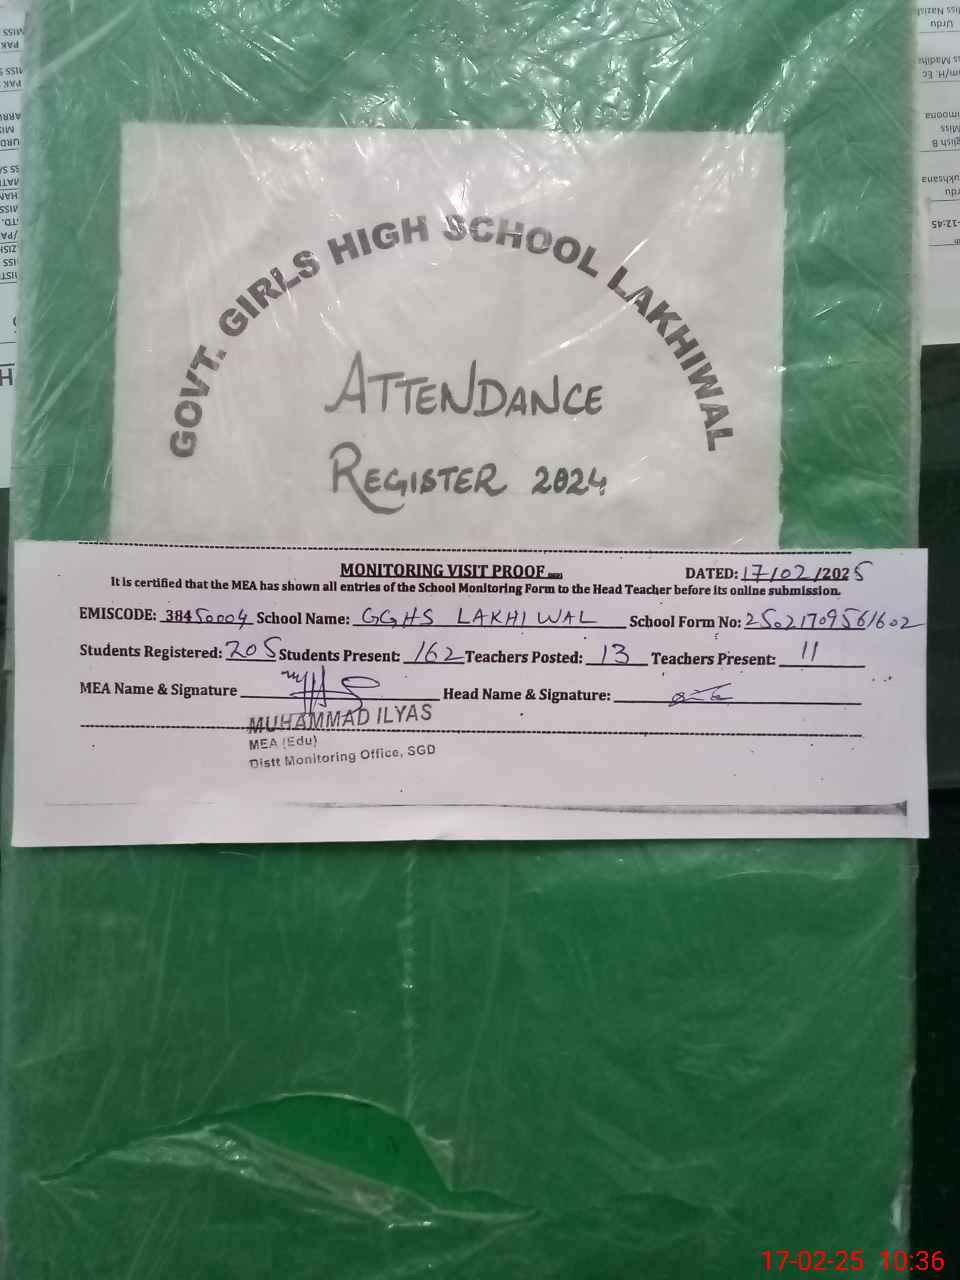 GOVT. GIRLS HIGH SCHOOL LAKHIWAL
ATTENDANCE
REGISTER 2024
MONITORING VISIT PROOF
DATED: 17/02/2025
It is certified that the MEA has shown all entries of the School Monitoring Form to the Head Teacher before its online submission.
EMISCODE: 38450004 School Name: GGHS LAKHIWAL School Form No: 25021709561602
Students Registered: 205 Students Present: 162 Teachers Posted: 13 Teachers Present: 11
MEA Name & Signature Head Name & Signature:
MUHAMMAD ILYAS
MEA (Edu)
Distt Monitoring Office, SGD
17-02-25 10:36